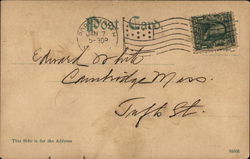 Post Card
JAN 7
5-30P
Edward White
Cambridge Mass.
Taft St.
This Side is for the Address